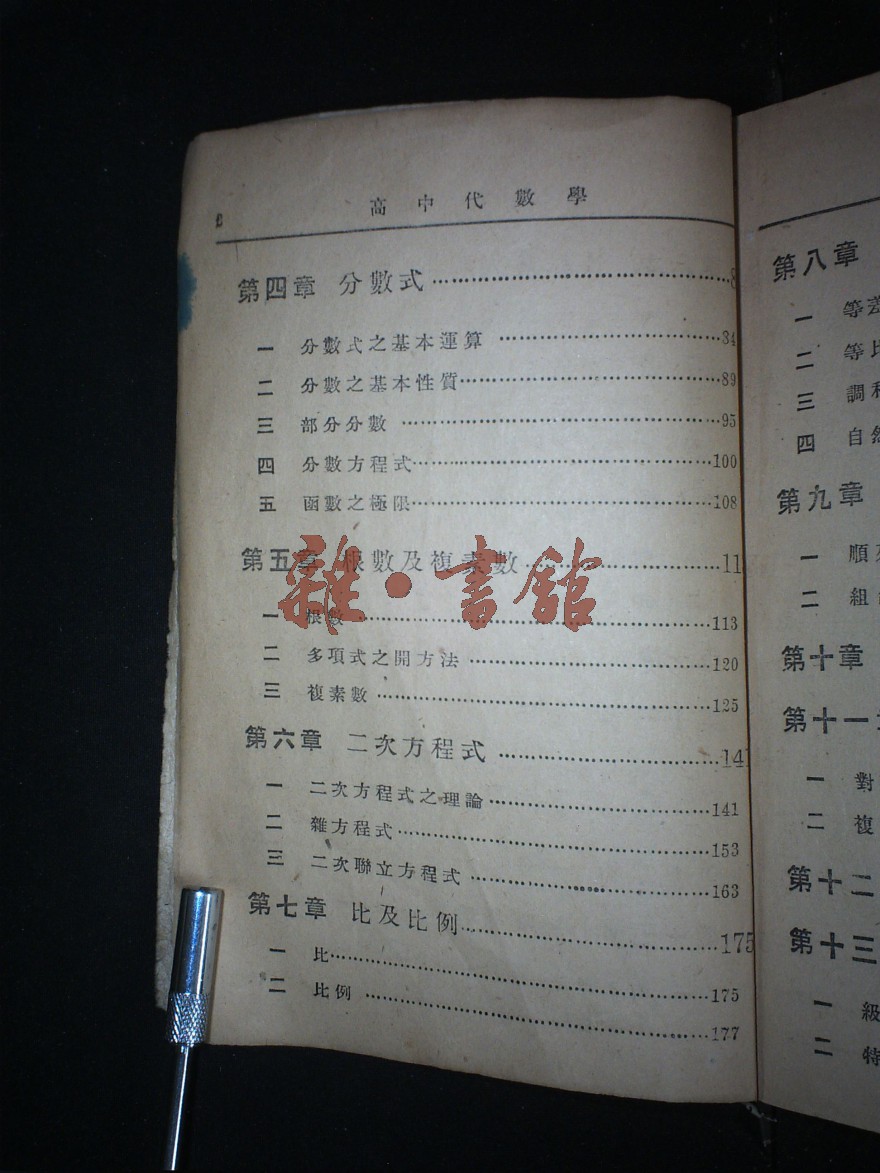 2
高中代數學
第四章 分數式……8
一 分數式之基本運算……84
二 分數之基本性質……89
三 部分分數……95
四 分數方程式……100
五 函數之極限……108
第五章 根數及複素數……11
一 根數……113
二 多項式之開方法……120
三 複素數……125
第六章 二次方程式……141
一 二次方程式之理論……141
二 雜方程式……153
三 二次聯立方程式……163
第七章 比及比例……175
一 比……175
二 比例……177
雜·書館
第八章
一 等差
二 等比
三 調和
四 自然
第九章
一 順列
二 組
第十章
第十一
一 對
二 複
第十二
第十三
一 級
二 特